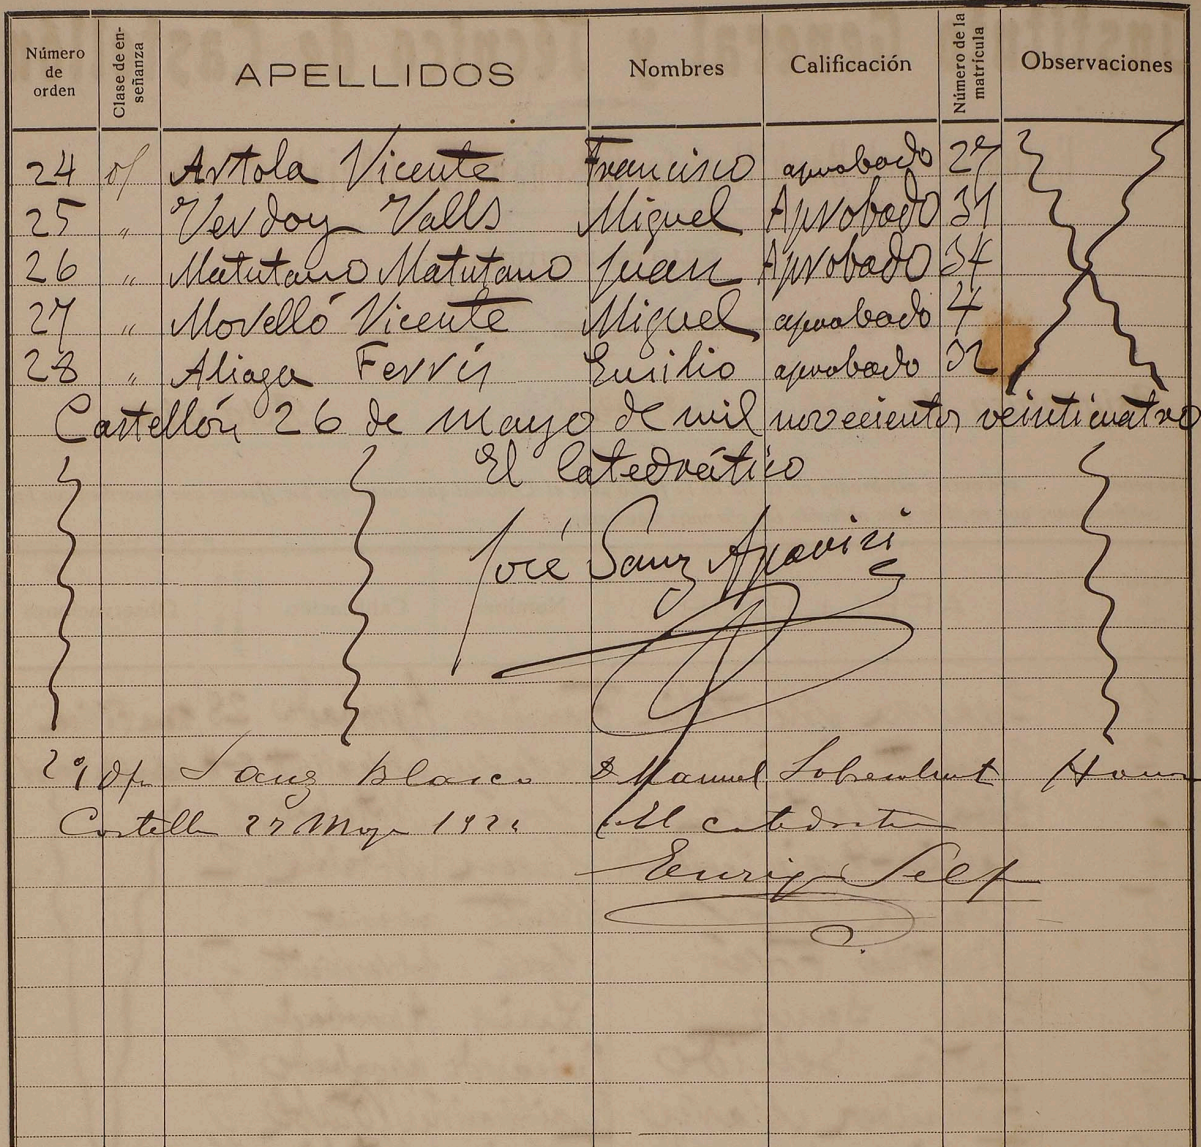 Número de orden Clase de en-señanza APELLIDOS Nombres Calificación Número de la matrícula Observaciones
24 of Artola Vicente Francisco aprobado 27
25 " Verdoy Valls Miguel Aprobado 31
26 " Matutano Matutano Juan Aprobado 34
27 " Movelló Vicente Miguel aprobado 4
28 " Aliaga Ferrís Emilio aprobado 32
Castellón 26 de Mayo de mil novecientos veinticuatro
El Catedrático
José Sanz
29 Sanz Blasco Manuel
Castelln 27 Mayo 192 El catedratic
Enriq